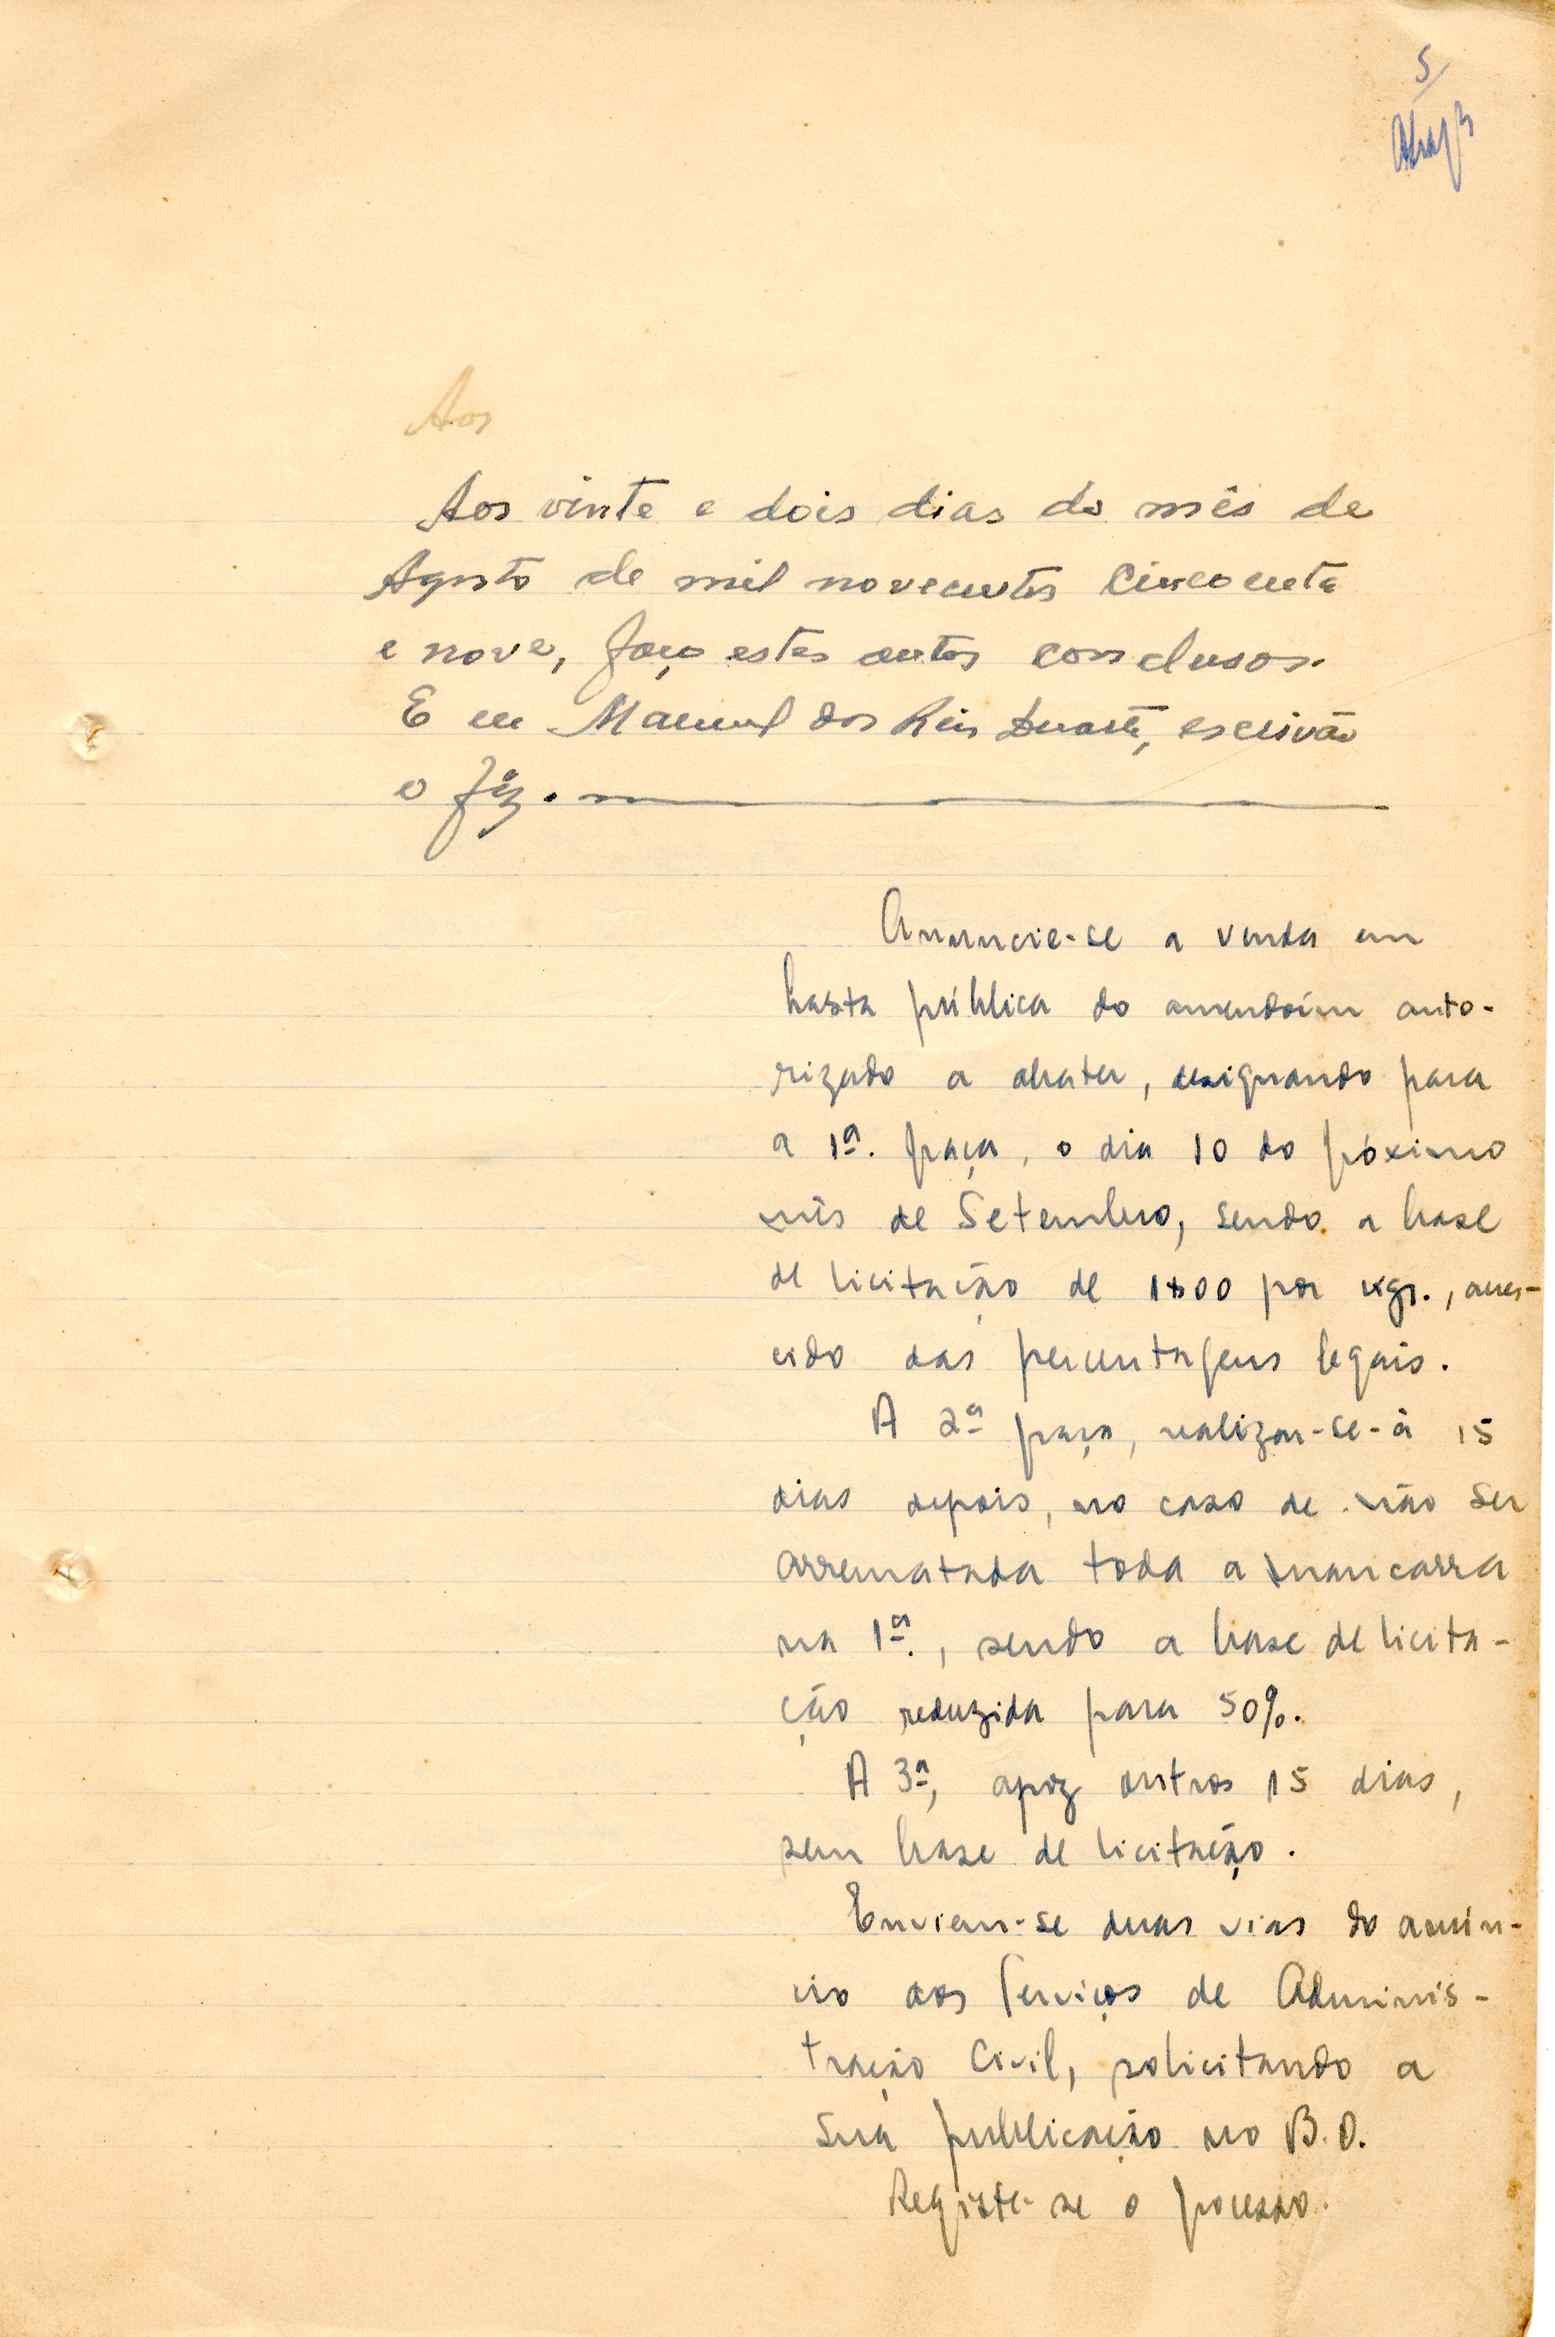 5
Aos
Aos vinte e dois dias do mês de
Agosto de mil novecentos cincoenta
e nove, faço estes autos conclusos.
E eu Manuel dos Reis Duarte, escrivão
o fiz.
Anuncie-se a venda em
hasta pública do amendoím auto-
rizado a abater, designando para
a 1ª. praça, o dia 10 do póximo
mês de Setembro, sendo a base
de licitação de 1$00 por kgr., acres-
cido das percentagens legais.
A 2ª praça, realizar-se-à 15
dias depois, no caso de não ser
arrematada toda a mancarra
na 1ª., sendo a base de licita-
ção reduzida para 50%.
A 3ª, apoz outros 15 dias,
sem base de licitação.
Enviem-se duas vias do anún-
cio aos Serviços de Adminis-
tração Civil, solicitando a
sua publicação no B.O.
Registe-se o pocesso.